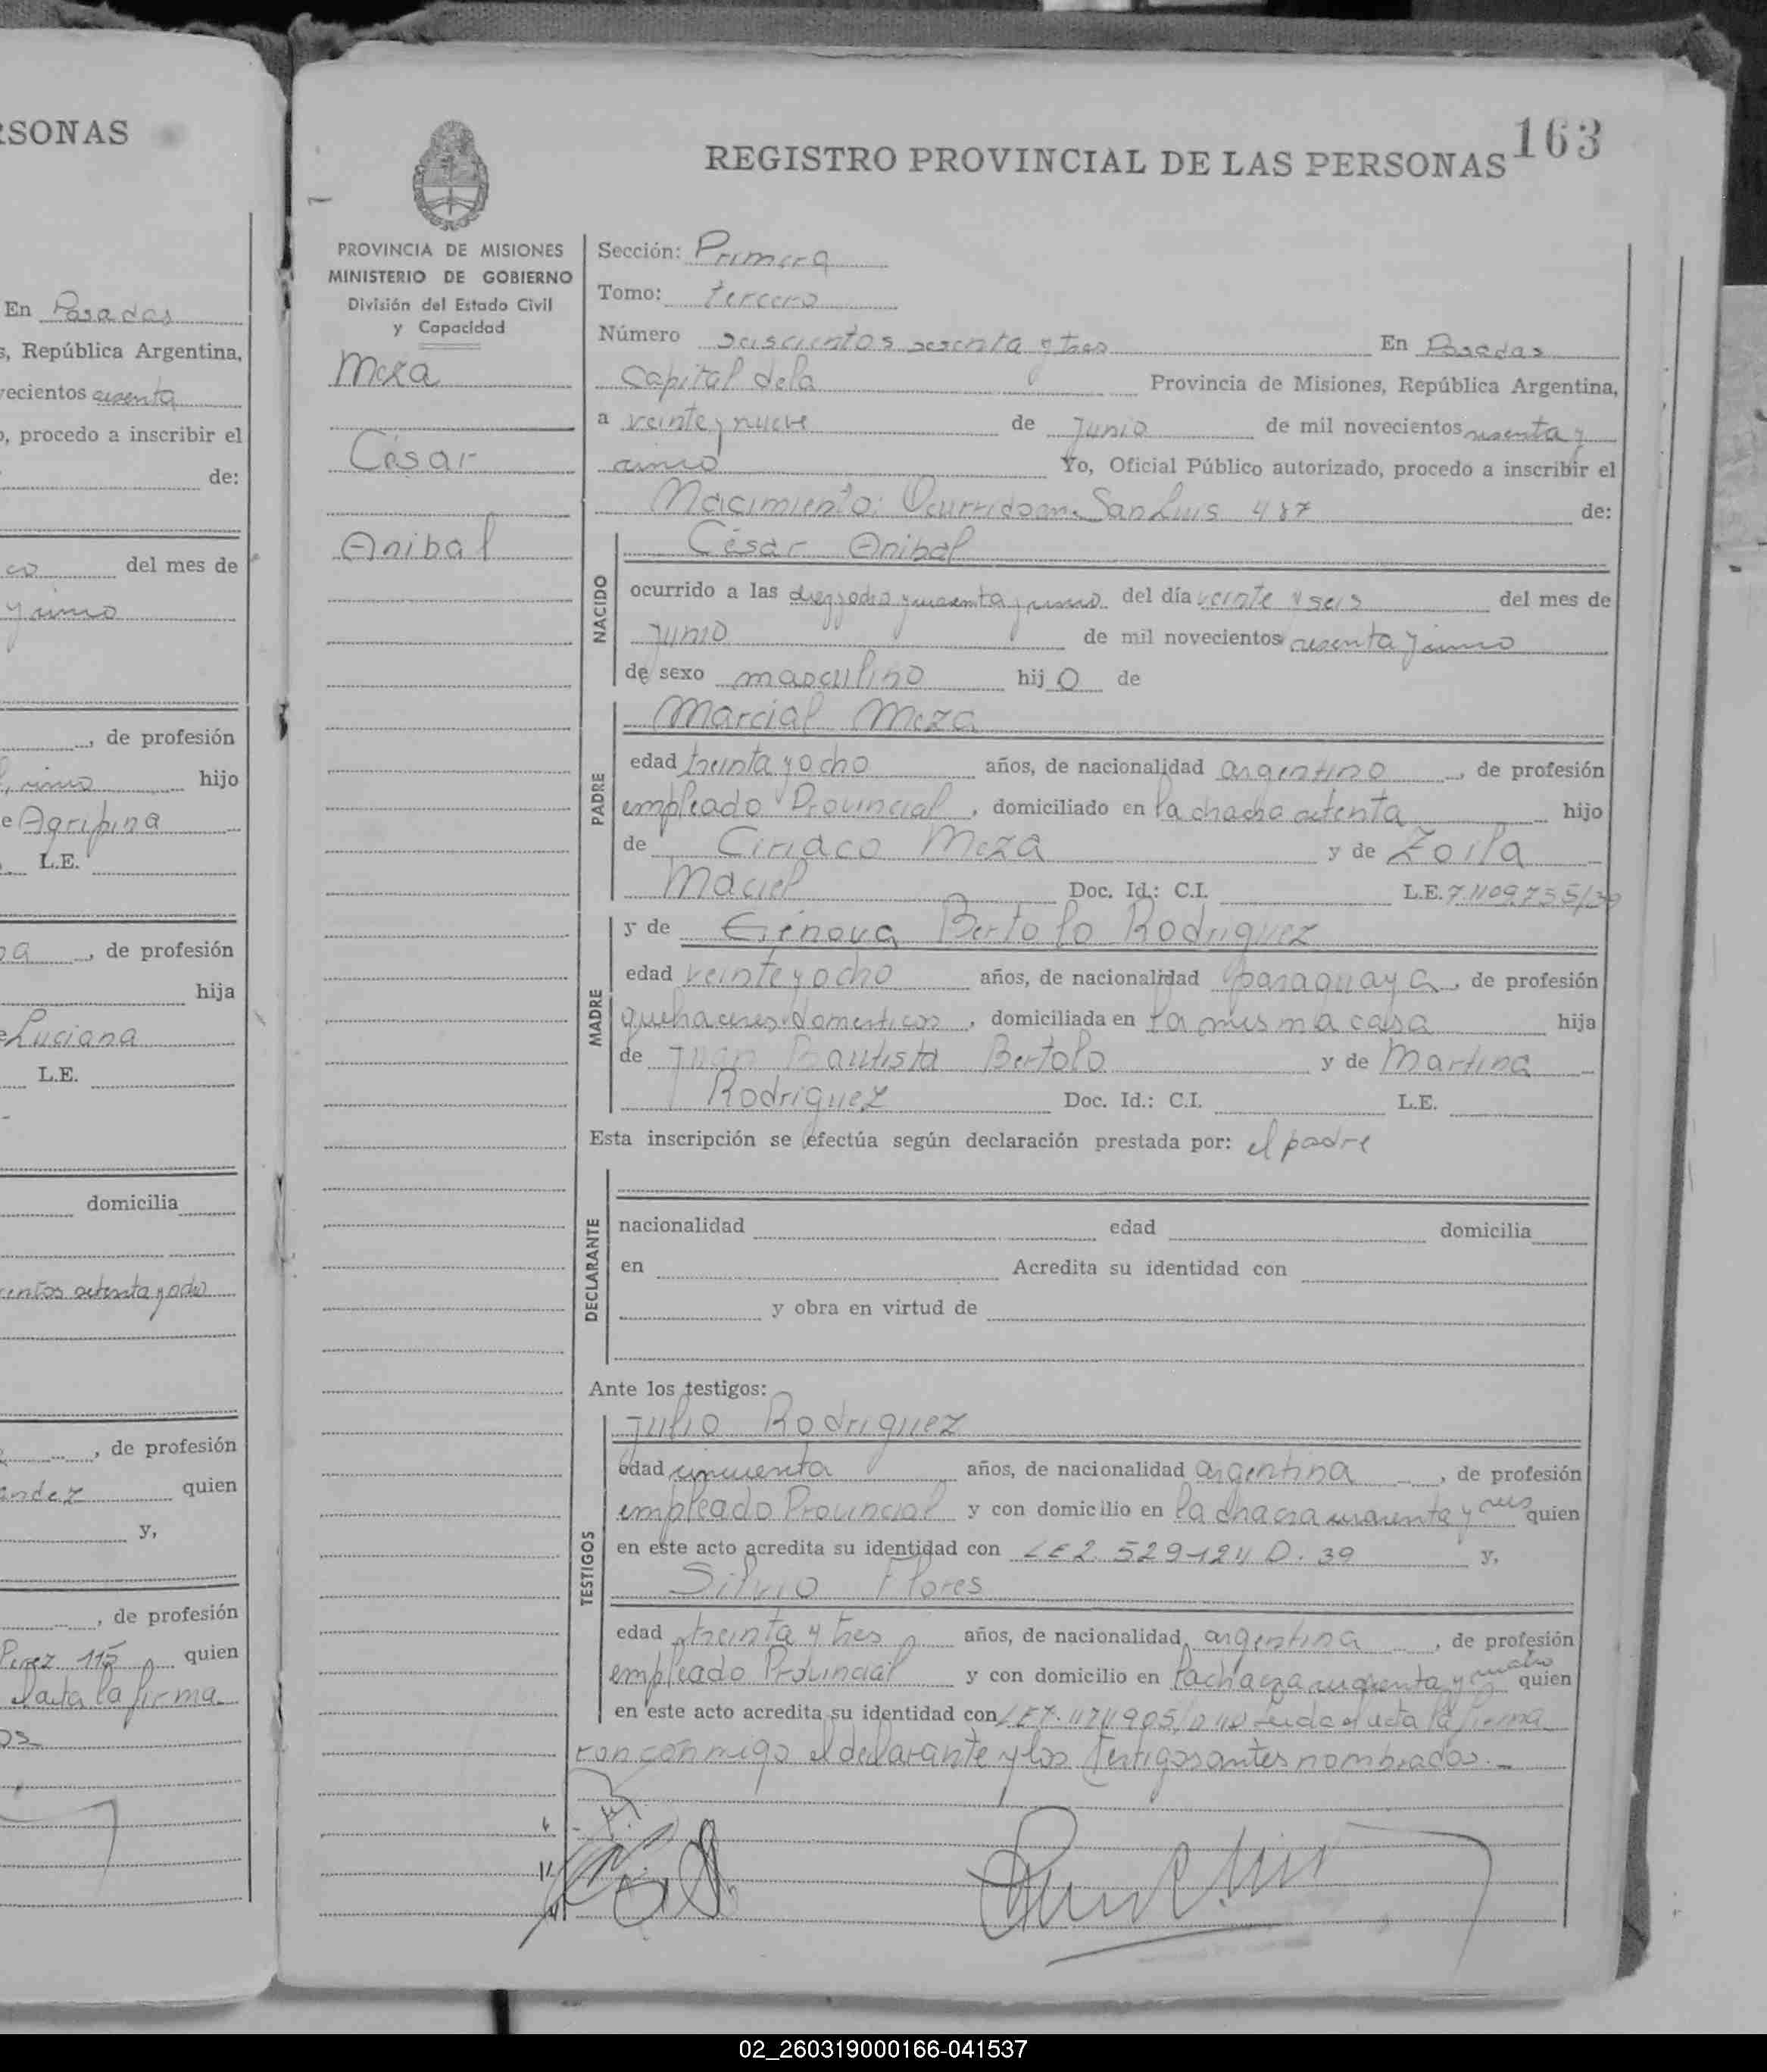 RSONAS
En Posadas
s, República Argentina,
vecientos sesenta
o, procedo a inscribir el
de:
co del mes de
y cinco
, de profesión
hijo
e Agripina
L.E.
a , de profesión
hija
Luciana
L.E.
domicilia
entos setenta y ocho
, de profesión
andez quien
y,
, de profesión
Perez 115 quien
el acta la firma
os
163
REGISTRO PROVINCIAL DE LAS PERSONAS
PROVINCIA DE MISIONES
MINISTERIO DE GOBIERNO
División del Estado Civil
y Capacidad
Meza
César
Anibal
Sección: Primera
Tomo: tercero
Número seiscientos sesenta y tres En Posadas
Capital dela Provincia de Misiones, República Argentina,
a veinte y nueve de Junio de mil novecientos sesenta y
cinco Yo, Oficial Público autorizado, procedo a inscribir el
Nacimiento: Ocurrido en San Luis 487 de:
César Anibal
NACIDO
ocurrido a las diez y ocho y cuarenta y cinco del día veinte y seis del mes de
Junio de mil novecientos sesenta y cinco
de sexo masculino hij o de
Marcial Meza
PADRE
edad treinta y ocho años, de nacionalidad argentino, de profesión
empleado Provincial, domiciliado en la chacra setenta hijo
de Ciriaco Meza y de Zoila
Maciel Doc. Id.: C.I. L.E.
y de Genova Bertolo Rodriguez
MADRE
edad veinte y ocho años, de nacionalidad paraguaya, de profesión
quehaceres domesticos, domiciliada en la misma casa hija
de Juan Bautista Bertolo y de Martina
Rodriguez Doc. Id.: C.I. L.E.
Esta inscripción se efectúa según declaración prestada por: el padre
DECLARANTE
nacionalidad edad domicilia
en Acredita su identidad con
y obra en virtud de
Ante los testigos:
Julio Rodriguez
TESTIGOS
edad cincuenta años, de nacionalidad argentina, de profesión
empleado Provincial y con domicilio en la chacra cuarenta y tres quien
en este acto acredita su identidad con LE 2. D. 39 y,
Silvio Flores
edad treinta y tres años, de nacionalidad argentina, de profesión
empleado Provincial y con domicilio en la chacra cuarenta y cuatro quien
en este acto acredita su identidad con Leida el acta la firma
ron conmigo el declarante y los testigos antes nombrados.-
02_260319000166-041537